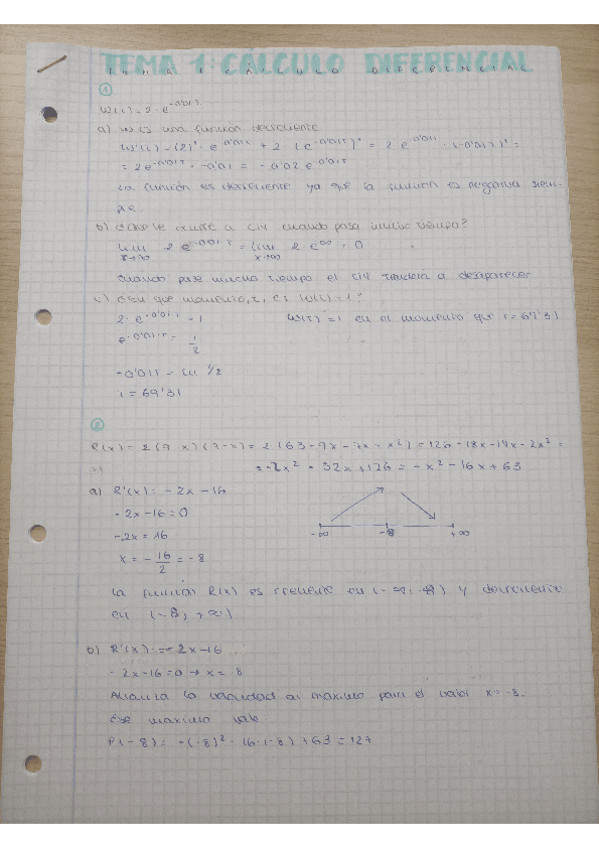 TEMA 1: CÁLCULO DIFERENCIAL
①
W(t) = 2 · e^-0'01t
a) W es una función decreciente
W'(t) = (2)' · e^-0'01t + 2 · (e^-0'01t)' = 2 · e^-0'01t · (-0'01t)' =
= 2e^-0'01t · -0'01 = -0'02 e^-0'01t
La función es decreciente ya que la función es negativa siem-
pre.
b) ¿Qué le ocurre a cuando pasa mucho tiempo?
lim 2 e^-0'01t = lim 2 · e^∞ = 0
t→∞ x→∞
Cuando pase mucho tiempo el tenderá a desaparecer
c) ¿En qué momento, t, es W(t) = 1?
2 · e^-0'01t = 1 W(t) = 1 en el momento que t = 69'31
e^-0'01t = 1/2
-0'01t = ln 1/2
t = 69'31
②
R(x) = 2(9-x)(7-x) = 2(63-9x-7x-x²) = 126-18x-14x-2x² =
= -2x² - 32x + 126 = -x² - 16x + 63
a) R'(x) = -2x-16
-2x-16=0
-2x=16
x = -16/2 = -8
-∞ -8 +∞
La función R(x) es creciente en (-∞, -8) y decreciente
en (-8, +∞)
b) R'(x) = -2x-16
-2x-16=0 → x = -8
Alcanza la velocidad al máximo para el valor x = -8.
Ese máximo vale
R(-8) = -(-8)² - 16·(-8) + 63 = 127